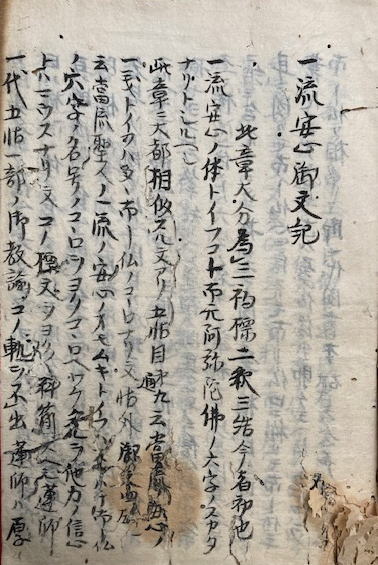 一流安心御文記
此章大分為三初標二釈三結今者初也
一流安心ノ体トイフコト南无阿弥陀佛ノ六字ノスカタ
ナリトシルヘシ
此章ニ大都相似スル文アリ五帖目第九云当流ノ安心ノ
一義トイフハ文南一仏ノコヽロナリ文帖外御
云当流聖人ノ一流ノ安心ノオモムキトイフハ
ノ六字ノ名号ノコヽロヲヨクコヽロヘ他力ノ信心
トハマウスナリ文コノ標文ヲヨク料簡スヘシ蓮師
一代五帖一部ノ御教諭コノ軌ヲ不出蓮師ハ厚